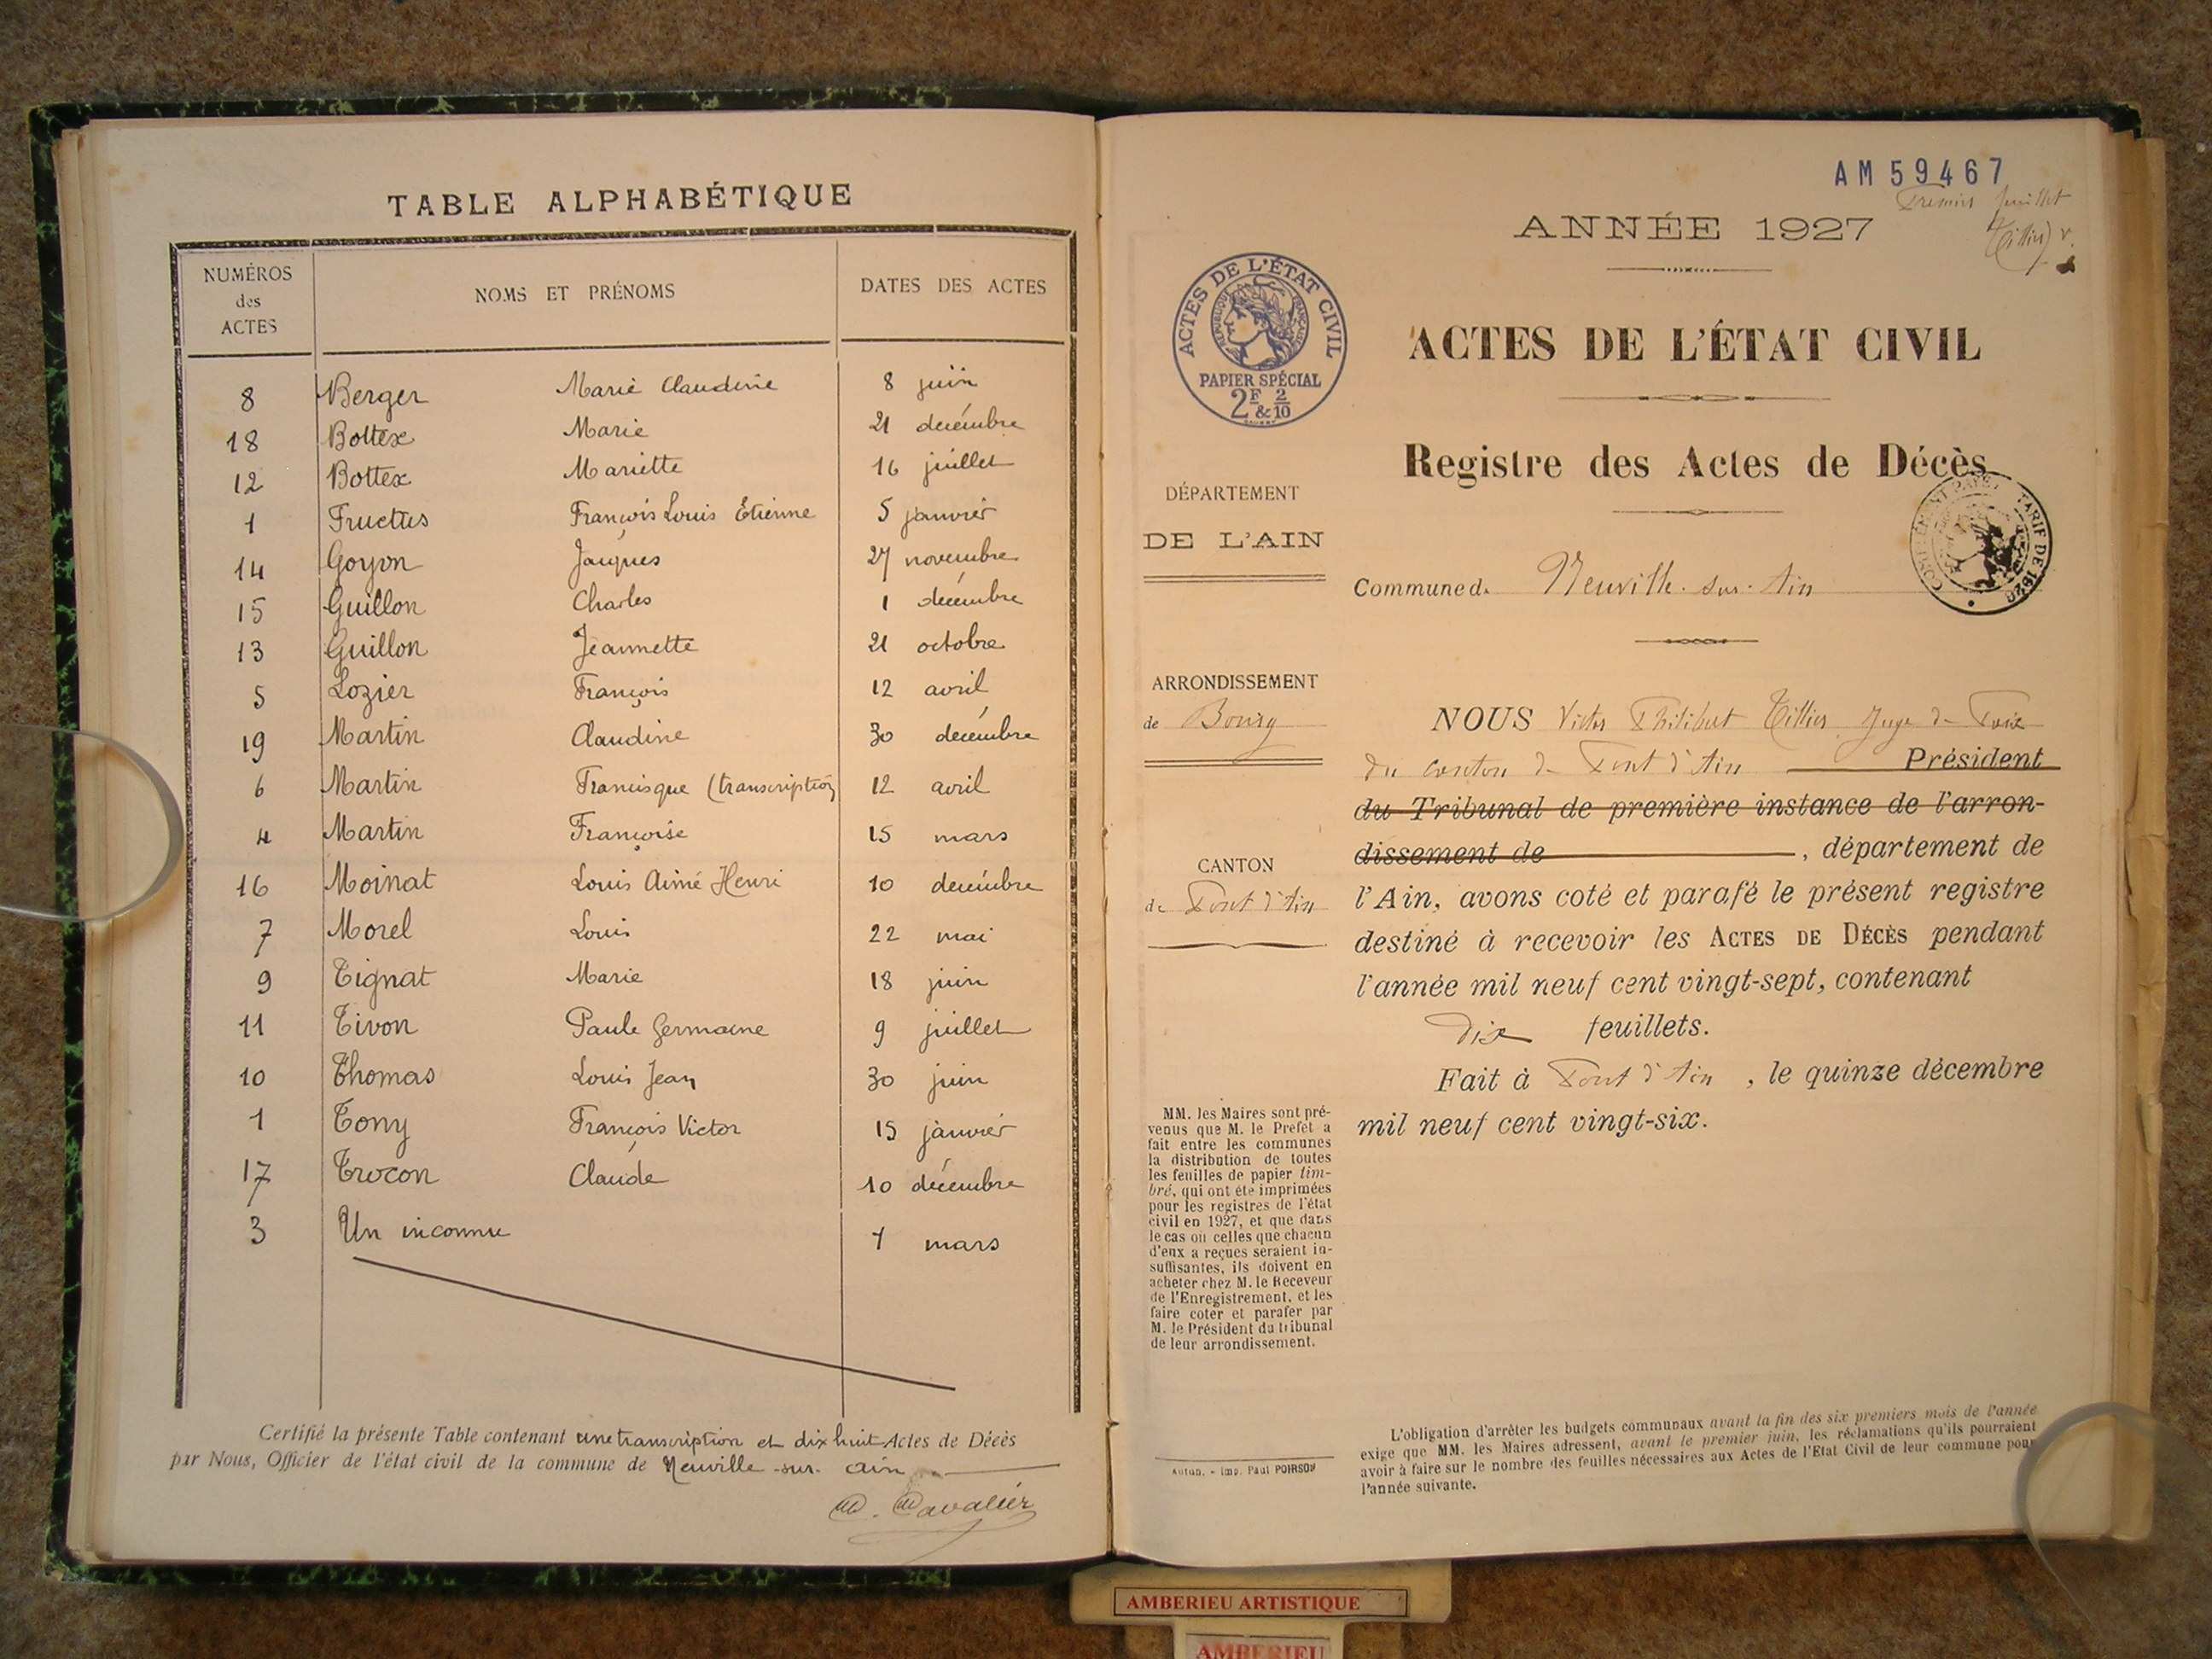 TABLE ALPHABÉTIQUE
NUMÉROS des ACTES NOMS ET PRÉNOMS DATES DES ACTES
8 Berger Marie Claudine 8 juin
18 Bottex Marie 21 décembre
12 Bottex Mariette 16 juillet
1 Fructus François Louis Étienne 5 janvier
14 Goyon Jacques 27 novembre
15 Guillon Charles 1 décembre
13 Guillon Jeannette 21 octobre
5 Lozier François 12 avril
19 Martin Claudine 30 décembre
6 Martin Francisque (transcription) 12 avril
4 Martin Françoise 15 mars
16 Moinat Louis Aimé Henri 10 décembre
7 Morel Louis 22 mai
9 Tignat Marie 18 juin
11 Tivon Paule Germaine 9 juillet
10 Thomas Louis Jean 30 juin
1 Tony François Victor 15 janvier
17 Trocon Claude 10 décembre
3 Un inconnu 1 mars
Certifié la présente Table contenant une transcription et dix huit Actes de Décès
par Nous, Officier de l'état civil de la commune de Neuville-sur-Ain
Cavalier
AM 59467
Premier feuillet
Tillier
ANNÉE 1927
ACTES DE L'ÉTAT CIVIL
RÉPUBLIQUE FRANÇAISE
PAPIER SPÉCIAL
2F & 2/10
ACTES DE L'ÉTAT CIVIL
Registre des Actes de Décès
TARIF DE 1926
DÉPARTEMENT
DE L'AIN
Commune de Neuville-sur-Ain
ARRONDISSEMENT
de Bourg
CANTON
de Pont d'Ain
NOUS Victor Philibert Tillier Juge de Paix
du canton de Pont d'Ain Président
du Tribunal de première instance de l'arron-
dissement de , département de
l'Ain, avons coté et parafé le présent registre
destiné à recevoir les ACTES DE DÉCÈS pendant
l'année mil neuf cent vingt-sept, contenant
dix feuillets.
Fait à Pont d'Ain , le quinze décembre
mil neuf cent vingt-six.
MM. les Maires sont pré-
venus que M. le Préfet a
fait entre les communes
la distribution de toutes
les feuilles de papier tim-
bré, qui ont été imprimées
pour les registres de l'état
civil en 1927, et que dans
le cas où celles que chacun
d'eux a reçues seraient in-
suffisantes, ils doivent en
acheter chez M. le Receveur
de l'Enregistrement, et les
faire coter et parafer par
M. le Président du tribunal
de leur arrondissement.
Autun. - Imp. Paul POIRSON
L'obligation d'arrêter les budgets communaux avant la fin des six premiers mois de l'année
exige que MM. les Maires adressent, avant le premier juin, les réclamations qu'ils pourraient
avoir à faire sur le nombre des feuilles nécessaires aux Actes de l'Etat Civil de leur commune pour
l'année suivante.
AMBERIEU ARTISTIQUE
AMBERIEU